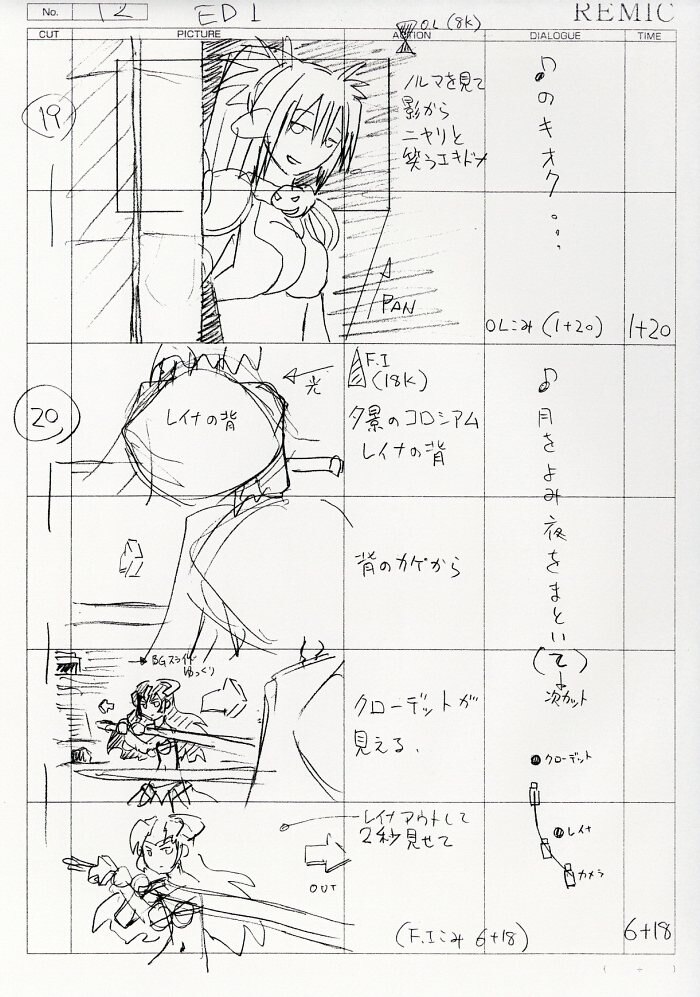 No. 12
ED 1
REMIC
CUT
PICTURE
ACTION
DIALOGUE
TIME
O.L (8K)
19
ノルマを見て
影から
ニヤリと
笑うエキドナ
♪のキオク...
PAN
OLこみ (1+20)
1+20
20
レイナの背
光
F.I
(18K)
夕景のコロシアム
レイナの背
♪月をよみ夜をまとい(て)
次カット
背のカゲから
BGスライド
ゆっくり
クローデットが
見える.
クローデット
レイナ
カメラ
レイナアウトして
2秒見せて
OUT
(F.Iこみ 6+18)
6+18
( + )